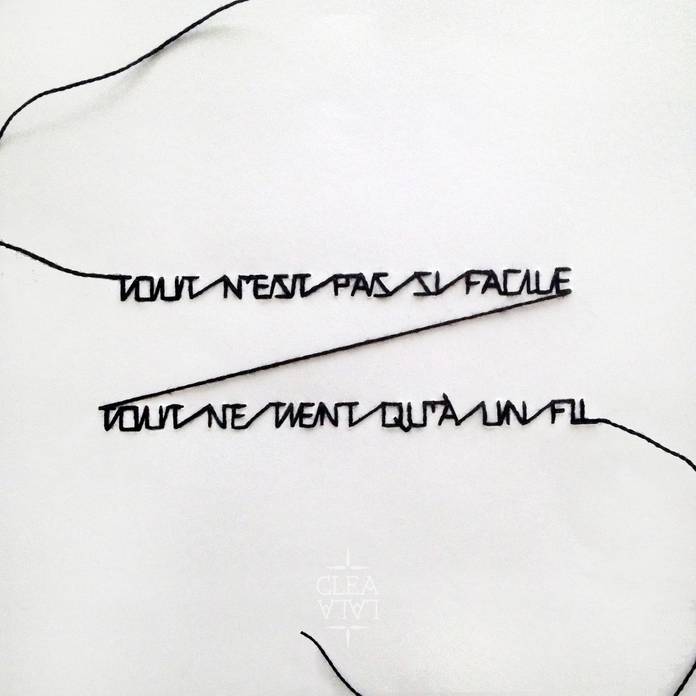 TOUT N'EST PAS SI FACILE
TOUT NE TIENT QU'À UN FIL
CLEA
LALA